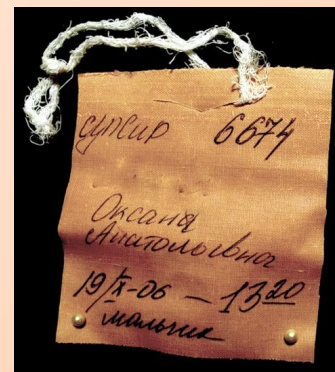 6674
Оксана
Анатольевна
19 IX-06 — 13 20
мальчик